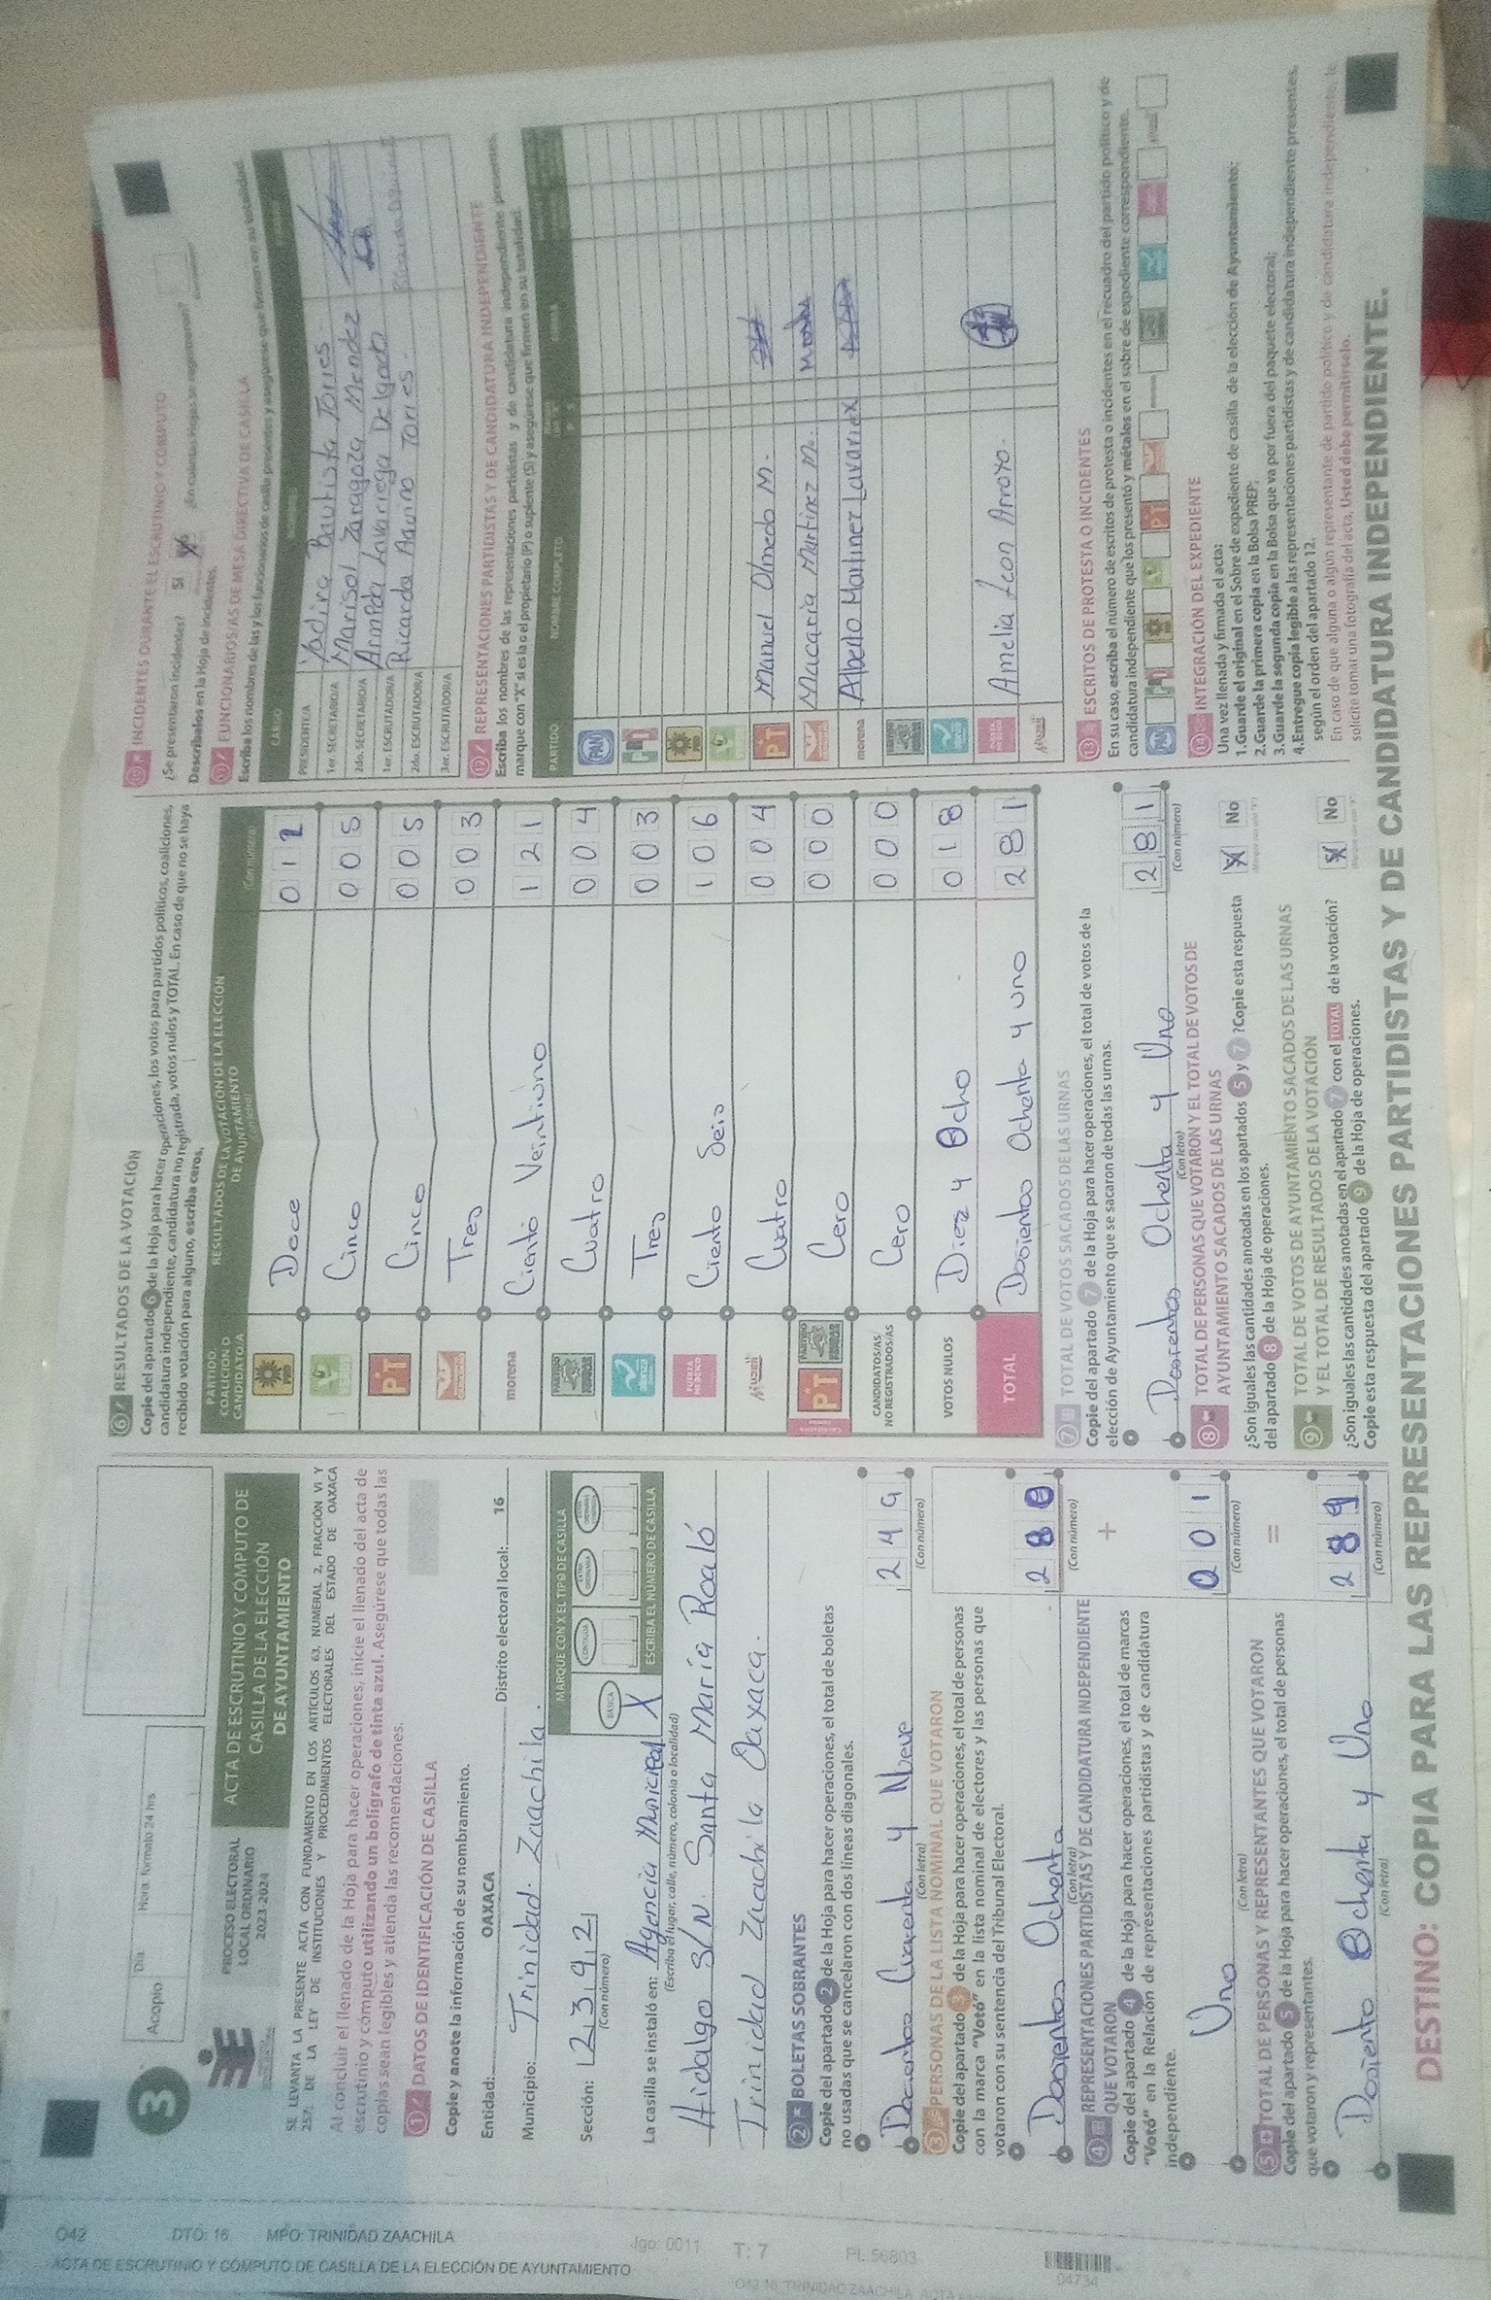 O42
DTO: 16
MPO: TRINIDAD ZAACHILA
ACTA DE ESCRUTINIO Y CÓMPUTO DE CASILLA DE LA ELECCIÓN DE AYUNTAMIENTO
Jgo: 0011
T: 7
PI. 56803
04734
3
Acopio
Día
Hora formato 24 hrs
PROCESO ELECTORAL
LOCAL ORDINARIO
2023-2024
ACTA DE ESCRUTINIO Y CÓMPUTO DE
CASILLA DE LA ELECCIÓN
DE AYUNTAMIENTO
SE LEVANTA LA PRESENTE ACTA CON FUNDAMENTO EN LOS ARTÍCULOS 63, NUMERAL 2, FRACCIÓN VI Y
257, DE LA LEY DE INSTITUCIONES Y PROCEDIMIENTOS ELECTORALES DEL ESTADO DE OAXACA
Al concluir el llenado de la Hoja para hacer operaciones, inicie el llenado del acta de
escrutinio y cómputo utilizando un bolígrafo de tinta azul. Asegúrese que todas las
copias sean legibles y atienda las recomendaciones.
1 DATOS DE IDENTIFICACIÓN DE CASILLA
Copie y anote la información de su nombramiento.
Entidad: OAXACA Distrito electoral local: 16
Municipio: Trinidad. Zaachila.
Sección: 2392
(Con número)
MARQUE CON X EL TIPO DE CASILLA
BÁSICA
X
ESCRIBA EL NÚMERO DE CASILLA
La casilla se instaló en: Agencia Municipal
(Escriba el lugar, calle, número, colonia o localidad)
Hidalgo S/N. Santa María Roaló
Trinidad Zaachila Oaxaca.
2 BOLETAS SOBRANTES
Copie del apartado 2 de la Hoja para hacer operaciones, el total de boletas
no usadas que se cancelaron con dos líneas diagonales.
Docientos Cuarenta y Nueve 249
(Con letra) (Con número)
3 PERSONAS DE LA LISTA NOMINAL QUE VOTARON
Copie del apartado 3 de la Hoja para hacer operaciones, el total de personas
con la marca "Votó" en la lista nominal de electores y las personas que
votaron con su sentencia del Tribunal Electoral.
Dosientos Ochenta 280
(Con letra) (Con número)
+
4 REPRESENTACIONES PARTIDISTAS Y DE CANDIDATURA INDEPENDIENTE
QUE VOTARON
Copie del apartado 4 de la Hoja para hacer operaciones, el total de marcas
"Votó" en la Relación de representaciones partidistas y de candidatura
independiente.
Uno 001
(Con letra) (Con número)
=
5 TOTAL DE PERSONAS Y REPRESENTANTES QUE VOTARON
Copie del apartado 5 de la Hoja para hacer operaciones, el total de personas
que votaron y representantes.
Dosiento Ochenta y Uno
(Con letra) (Con número)
6 RESULTADOS DE LA VOTACIÓN
Copie del apartado 6 de la Hoja para hacer operaciones, los votos para partidos políticos, coaliciones,
candidatura independiente, candidatura no registrada, votos nulos y TOTAL. En caso de que no se haya
recibido votación para alguno, escriba ceros.
PARTIDO, COALICIÓN O CANDIDATO/A
RESULTADOS DE LA VOTACIÓN DE LA ELECCIÓN
DE AYUNTAMIENTO
(Con número)
PRD Doce 012
Cinco 005
PT Cinco 005
Tres 003
morena Ciento Veintiuno 121
Cuatro 004
Tres 003
FUERZA MÉXICO Ciento Seis 106
Mujer Cuatro 004
PT Cero 000
CANDIDATOS/AS NO REGISTRADOS/AS Cero 000
VOTOS NULOS Diez y Ocho 018
TOTAL Dosientos Ochenta y uno 281
7 TOTAL DE VOTOS SACADOS DE LAS URNAS
Copie del apartado 7 de la Hoja para hacer operaciones, el total de votos de la
elección de Ayuntamiento que se sacaron de todas las urnas.
Dosientos Ochenta y Uno 281
(Con letra) (Con número)
8 TOTAL DE PERSONAS QUE VOTARON Y EL TOTAL DE VOTOS DE
AYUNTAMIENTO SACADOS DE LAS URNAS
¿Son iguales las cantidades anotadas en los apartados 5 y 7 ? Copie esta respuesta
del apartado 8 de la Hoja de operaciones.
X No
9 TOTAL DE VOTOS DE AYUNTAMIENTO SACADOS DE LAS URNAS
Y EL TOTAL DE RESULTADOS DE LA VOTACIÓN
¿Son iguales las cantidades anotadas en el apartado 7 con el TOTAL de la votación?
Copie esta respuesta del apartado 9 de la Hoja de operaciones.
X No
10 INCIDENTES DURANTE EL ESCRUTINIO Y CÓMPUTO
¿Se presentaron incidentes? Sí X ¿En cuántas Hojas se registraron?
Descríbalos en la Hoja de incidentes.
11 FUNCIONARIOS/AS DE MESA DIRECTIVA DE CASILLA
Escriba los nombres de las y los funcionarios de casilla presentes y asegúrese que firmen en su totalidad.
CARGO
NOMBRES
PRESIDENTE/A Yadira Bautista Torres.
1er. SECRETARIO/A Marisol Zaragoza Mendez
2do. SECRETARIO/A Aimpda Lavariega Delgado
1er. ESCRUTADOR/A Ricarda Aquino Torres.
2do. ESCRUTADOR/A
3er. ESCRUTADOR/A
12 REPRESENTACIONES PARTIDISTAS Y DE CANDIDATURA INDEPENDIENTE
Escriba los nombres de las representaciones partidistas y de candidatura independiente presentes,
marque con "X" si es la o el propietario (P) o suplente (S) y asegúrese que firmen en su totalidad.
PARTIDO
NOMBRE COMPLETO
PAN
PRI
PRD
PT Manuel Olmedo M.
Macaria Martinez M.
morena Alberto Martinez Lavariex
FUERZA MÉXICO Amelia Leon Arroyo.
Mujer
13 ESCRITOS DE PROTESTA O INCIDENTES
En su caso, escriba el número de escritos de protesta o incidentes en el recuadro del partido político y de
candidatura independiente que los presentó y métalos en el sobre de expediente correspondiente.
14 INTEGRACIÓN DEL EXPEDIENTE
Una vez llenada y firmada el acta:
1.Guarde el original en el Sobre de expediente de casilla de la elección de Ayuntamiento;
2.Guarde la primera copia en la Bolsa PREP;
3.Guarde la segunda copia en la Bolsa que va por fuera del paquete electoral;
4.Entregue copia legible a las representaciones partidistas y de candidatura independiente presentes,
según el orden del apartado 12.
En caso de que alguna o algún representante de partido político y de candidatura independiente, le
solicite tomar una fotografía del acta, Usted debe permitírselo.
DESTINO: COPIA PARA LAS REPRESENTACIONES PARTIDISTAS Y DE CANDIDATURA INDEPENDIENTE.